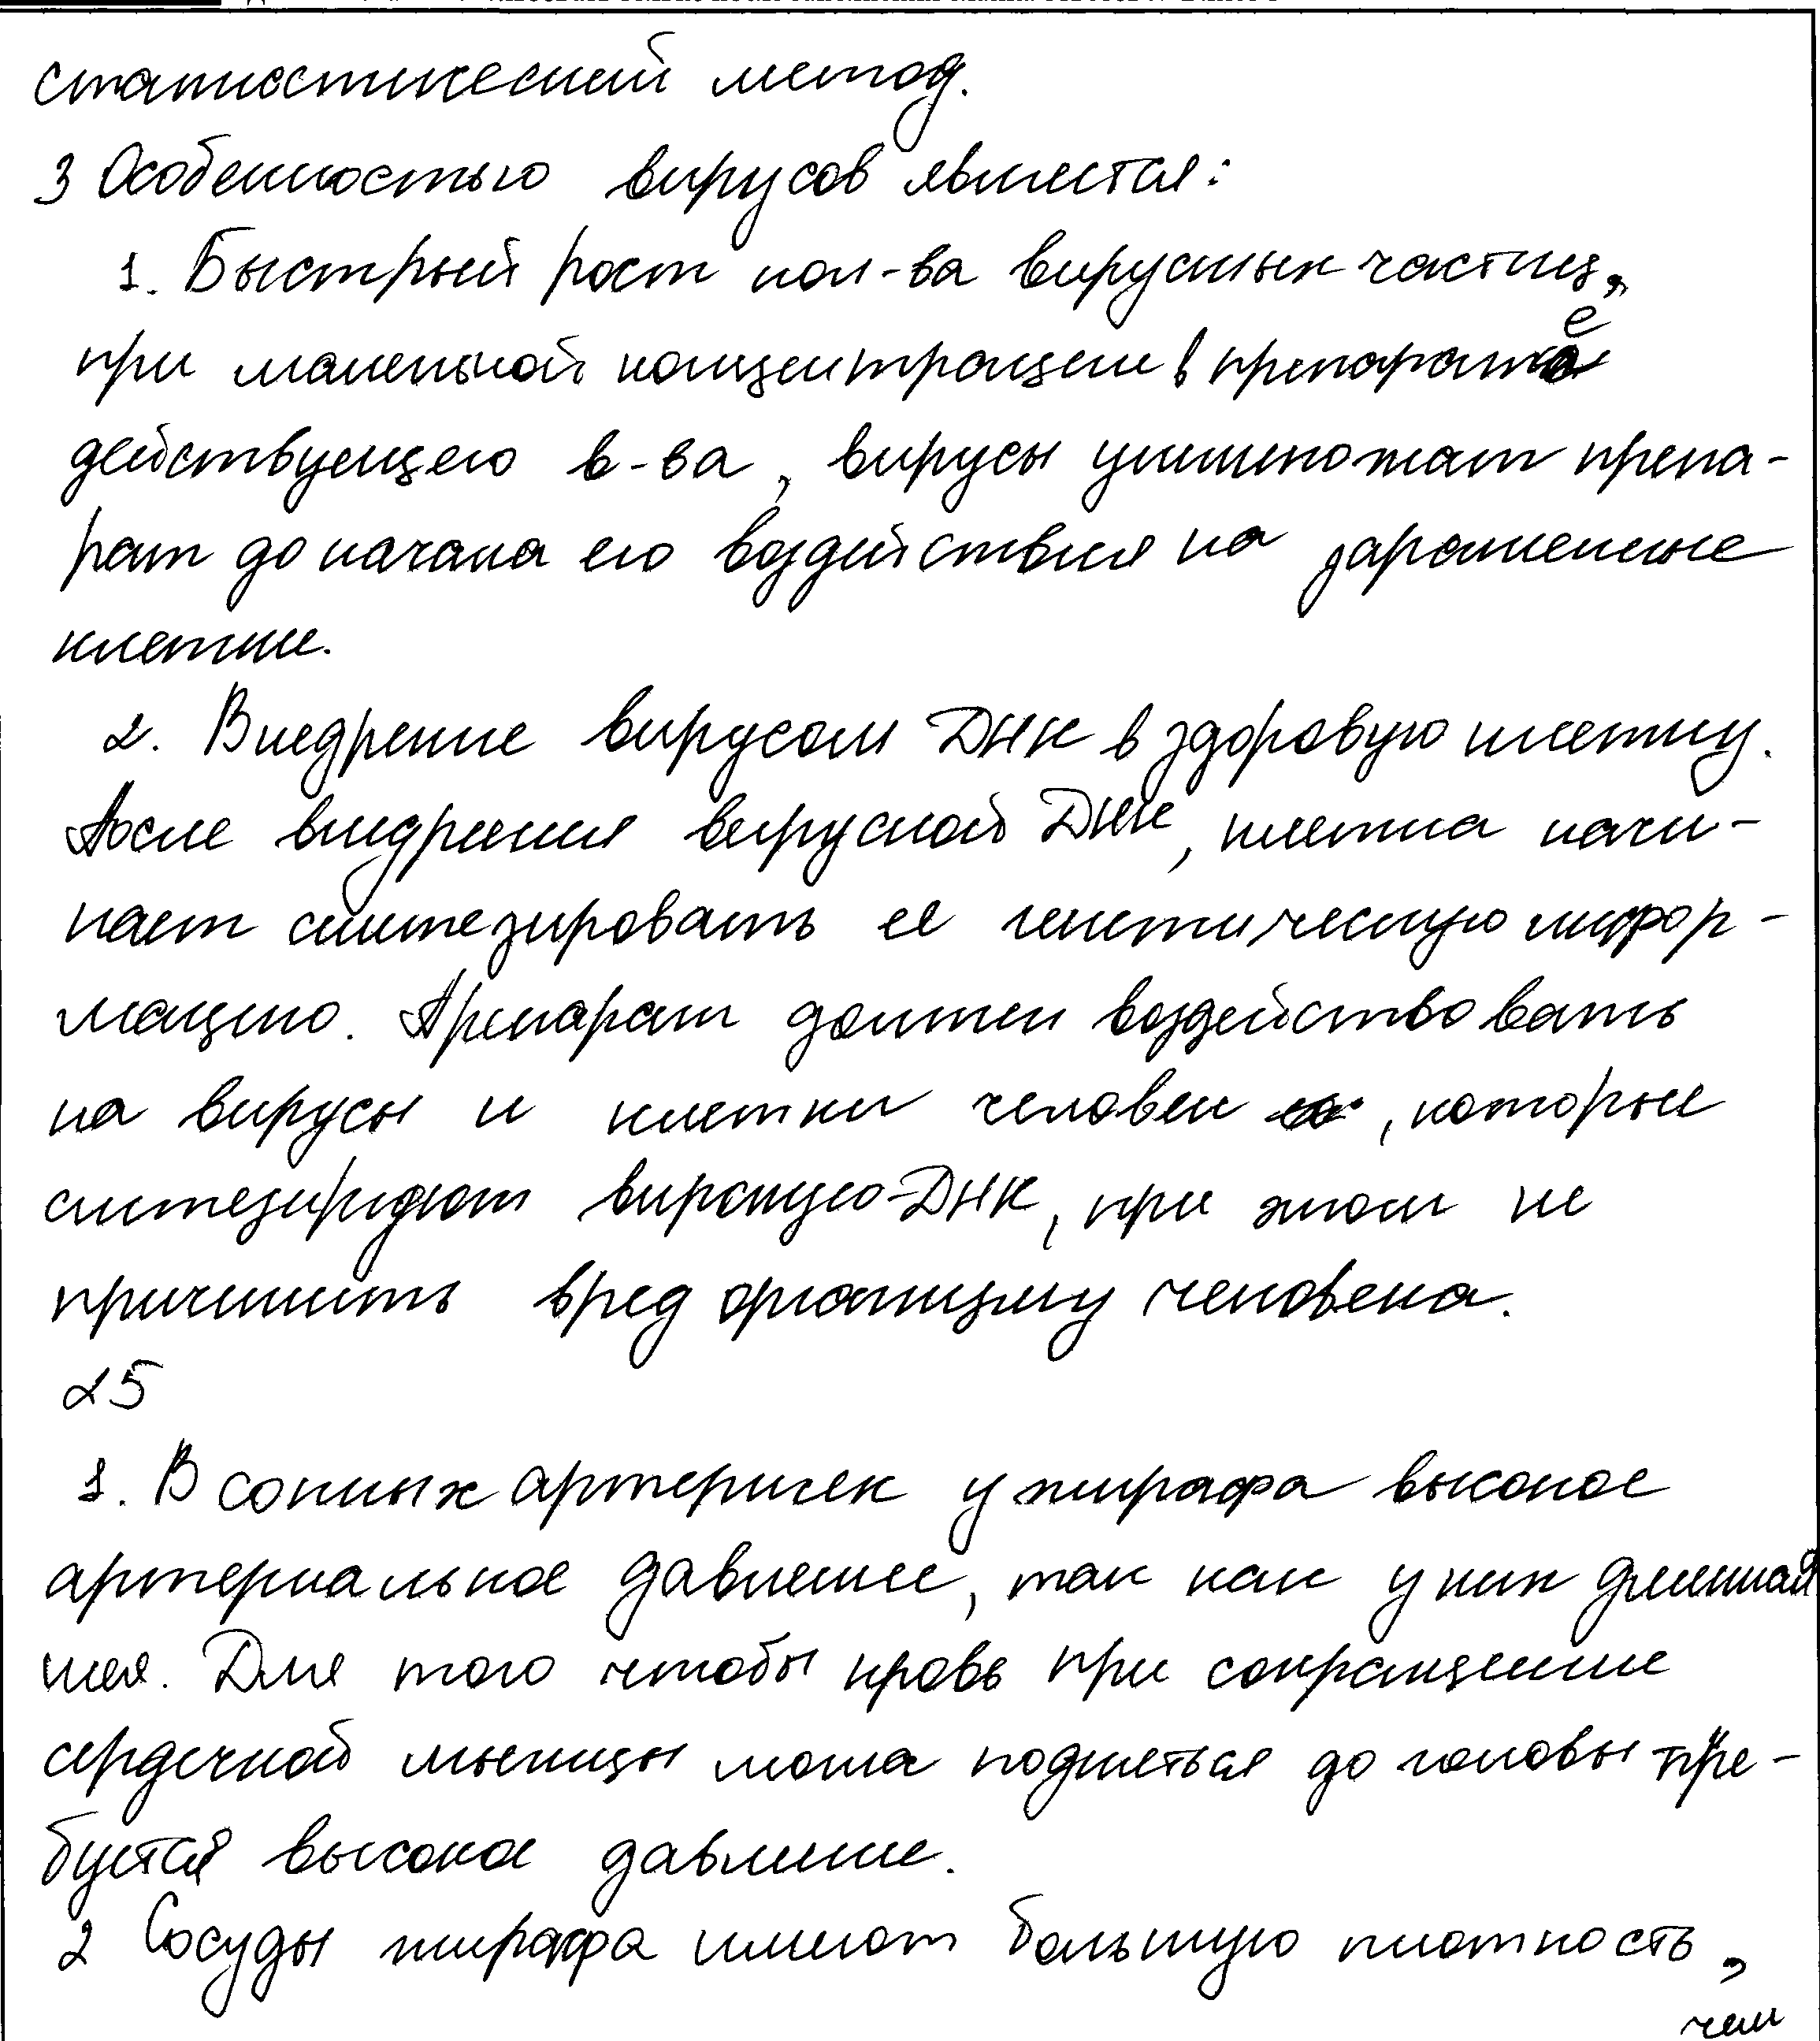 статистический метод.
3 Особенностью вирусов является:
1. Быстрый рост кол-ва вирусных частиц,
при маленькой концентрации в препарате
действующего в-ва, вирусы уничтожат препа-
рат до начала его воздействия на зараженные
клетки.
2. Внедрение вирусом ДНК в здоровую клетку.
После внедрения вирусной ДНК, клетка начи-
нает синтезировать её генетическую инфор-
мацию. Препарат должен воздействовать
на вирусы и клетки человек, которые
синтезируют вирсную ДНК, при этом не
причинить вред организму человека.
25
1. В сонных артериях у жирафа высокое
артериальное давление, так как у них длинная
шея. Для того чтобы кровь при сокращение
сердечной мышцы могла подняться до головы тре-
буется высокое давление.
2 Сосуды жирафа имеют большую плотность,
чем